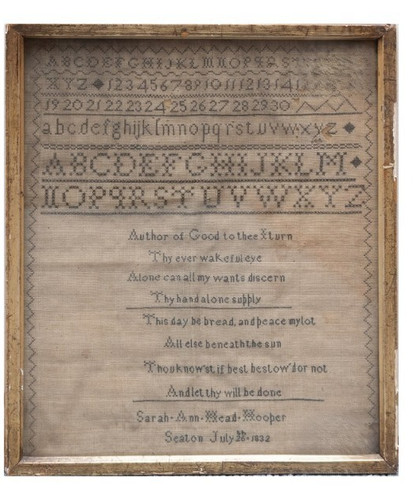 ABCDEFGHIJKLMNOPQRST
XYZ 1 2 3 4 5 6 7 8 9 10 11 12 13 14
19 20 21 22 23 24 25 26 27 28 29 30
abcdefghijklmnopqrstuvwxyz
ABCDEFGHIJKLM
NOPQRSTUVWXYZ
Author of Good to thee I turn
Thy ever wakeful eye
Alone can all my wants discern
Thy hand alone supply
This day be bread, and peace my lot
All else beneath the sun
Thou know'st, if best bestow'd or not
And let thy will be done
Sarah Ann Head Hooper
Seaton July 1832